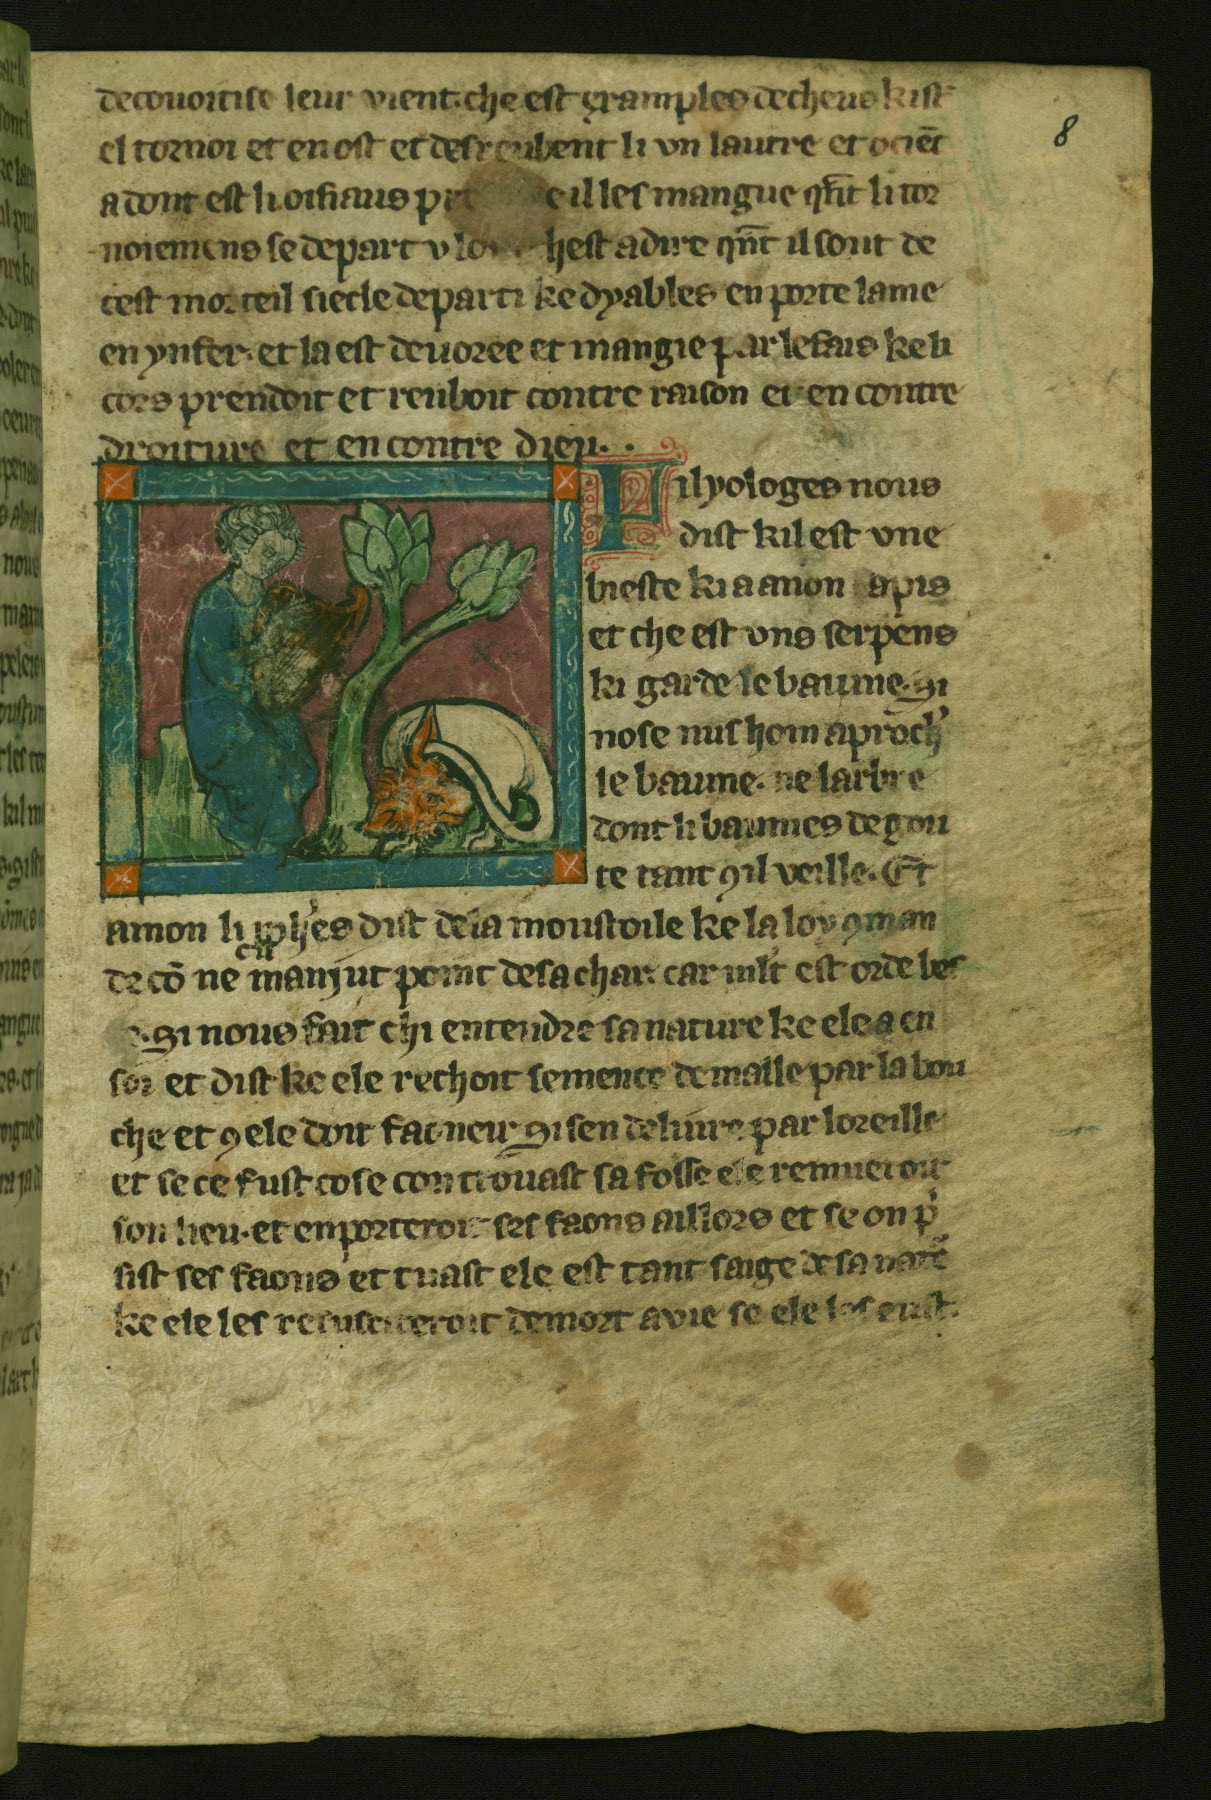 decouoitise leur vient. che est examples de cheus kist
el tornoi et en ost et desreubent li vn lautre et ociēt
adont est li oisiaus e il les mangue qn̄t li tor
noiemens se depart v hest adire qn̄t il sont de
cest morteil siecle departi ke dyables en porte lame
en ynfer. et la est deuoree et mangie par le fais ke li
cors prendoit et reuboit contre raison et en contre
droiture et en contre dieu.
8
Filyologes nous
dist kil est vne
bieste ki a a non apis
et che est vns serpens
ki garde le baume. Si
nose nus hom aproch'
le baume. ne larbre
dont li baumes degou
te tant ꝯ il veille. Et
amon li dist de la moustoile ke la loy ꝯman
de cō ne manjut point de sa char. car mlt est orde bes
Si nous fait chi entendre sa nature ke ele a en
soi et dist ke ele rechoit semence de malle par la bou
che et ꝯ ele doit faoneir si sen deliure par loreille
et se ce fust cose con trouast sa fosse ele remueroit
son lieu. et enporteroit ses faons aillors et se on p̄
sist ses faons et tuast ele est tant saige de sa natē
ke ele les resusciteroit de mort a vie se ele les eust.